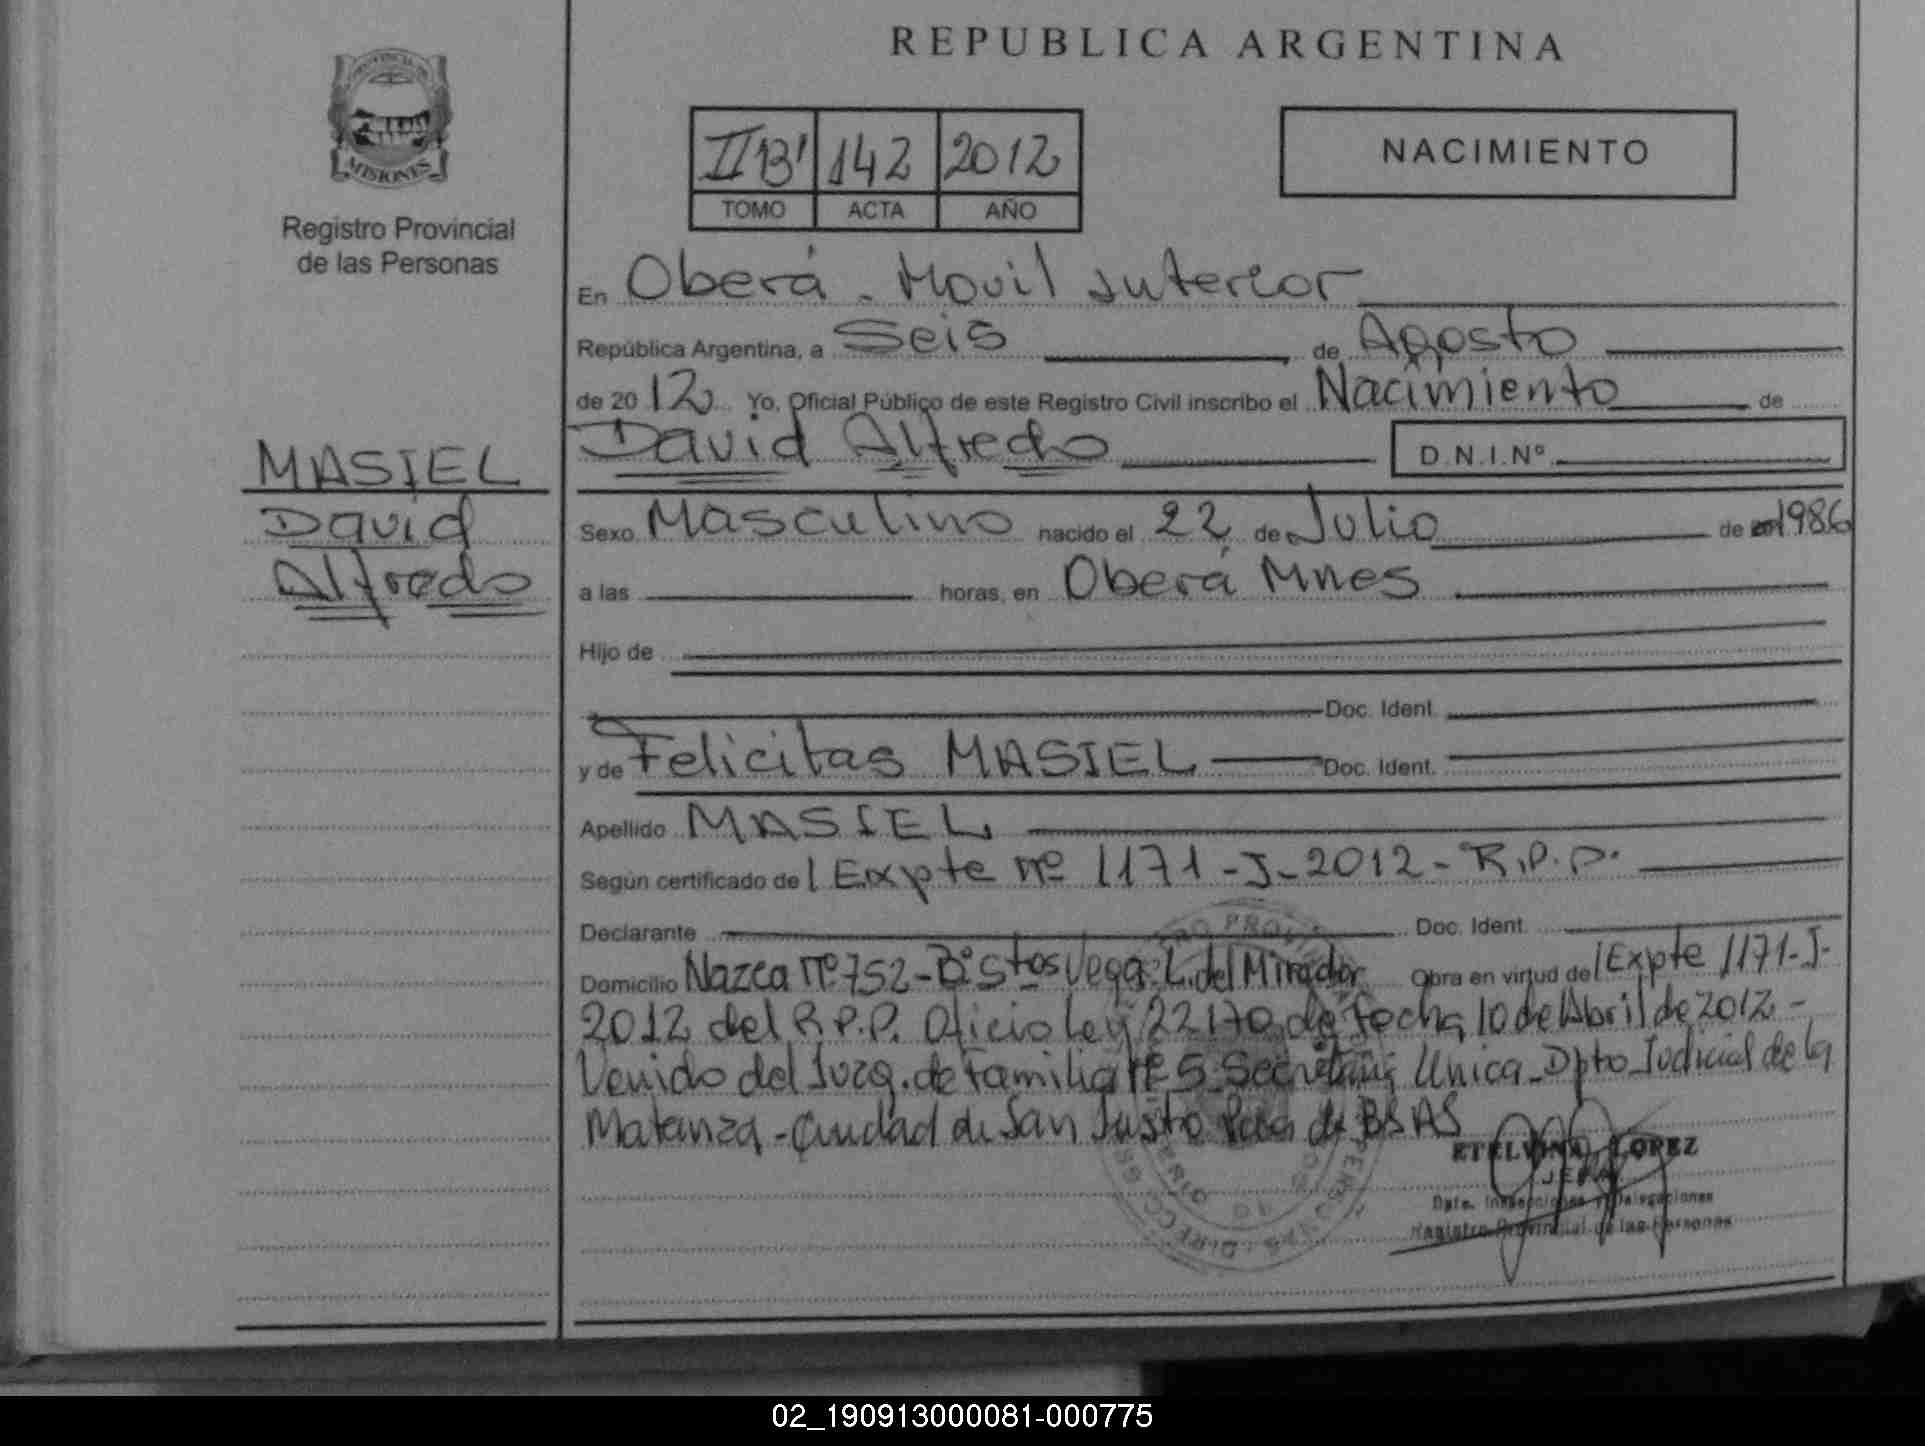 REPUBLICA ARGENTINA
MISIONES
Registro Provincial
de las Personas
II"B" 142 2012
TOMO ACTA AÑO
NACIMIENTO
En Oberá - Movil Interior
República Argentina, a Seis de Agosto
de 2012 Yo, Oficial Público de este Registro Civil inscribo el Nacimiento de
David Alfredo D.N.I.Nº
MASIEL
David
Alfredo
Sexo Masculino nacido el 22 de Julio de 1986
a las horas, en Oberá Mnes
Hijo de
Doc. Ident.
y de Felicitas MASIEL Doc. Ident.
Apellido MASIEL
Según certificado de l Expte nº 1171-J-2012-R.P.P.
Declarante Doc. Ident.
Domicilio Nazca nº 752-Bº Stos Vega. L. del Mirador Obra en virtud del Expte 1171-J-
2012 del R.P.P. Oficio Ley 22170 de fecha 10 de Abril de 2012-
Venido del Juzg. de Familia nº 5 Secretaria Unica-Dpto Judicial de la
Matanza-Ciudad de San Justo Pcia de BSAS
ETELVINA LOPEZ
JEFA
Dpto. Inspecciones y Delegaciones
Registro Provincial de las Personas
02_190913000081-000775